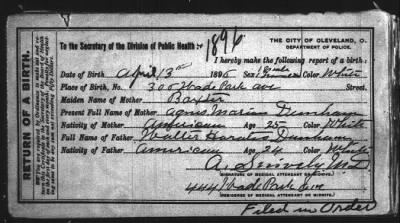 THE CITY OF CLEVELAND, O.
DEPARTMENT OF POLICE.
To the Secretary of the Division of Public Health: 1896
I hereby make the following report of a birth:
Date of Birth April 13th 1896 Sex Female Color White
Place of Birth, No. 300 Wade Park ave Street
Maiden Name of Mother Baxter
Present Full Name of Mother Agnes Marian Dunham
Nativity of Mother American Age 25 Color White
Full Name of Father Walter Dunham
Nativity of Father American Age 24 Color White
A. Snively M.D.
(SIGNATURE OF MEDICAL ATTENDANT OR MIDWIFE)
444 Wade Park Ave
(RESIDENCE OF MEDICAL ATTENDANT OR MIDWIFE)
Filed in Order
RETURN OF A BIRTH.